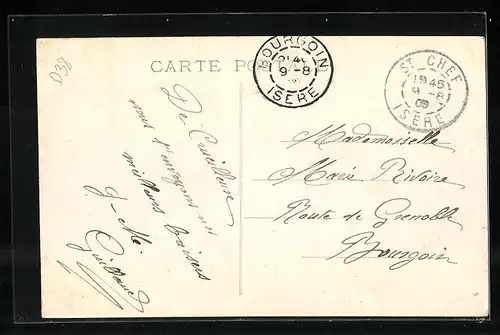 D38
CARTE PO
BOURGOIN
9-8
ISERE
ST CHEF
1945
9-8
09
ISERE
De
nous t'envoyons nos
meilleurs baisers
J. M.
Mademoiselle
Marie Rivoire
Route de Grenoble
Bourgoin